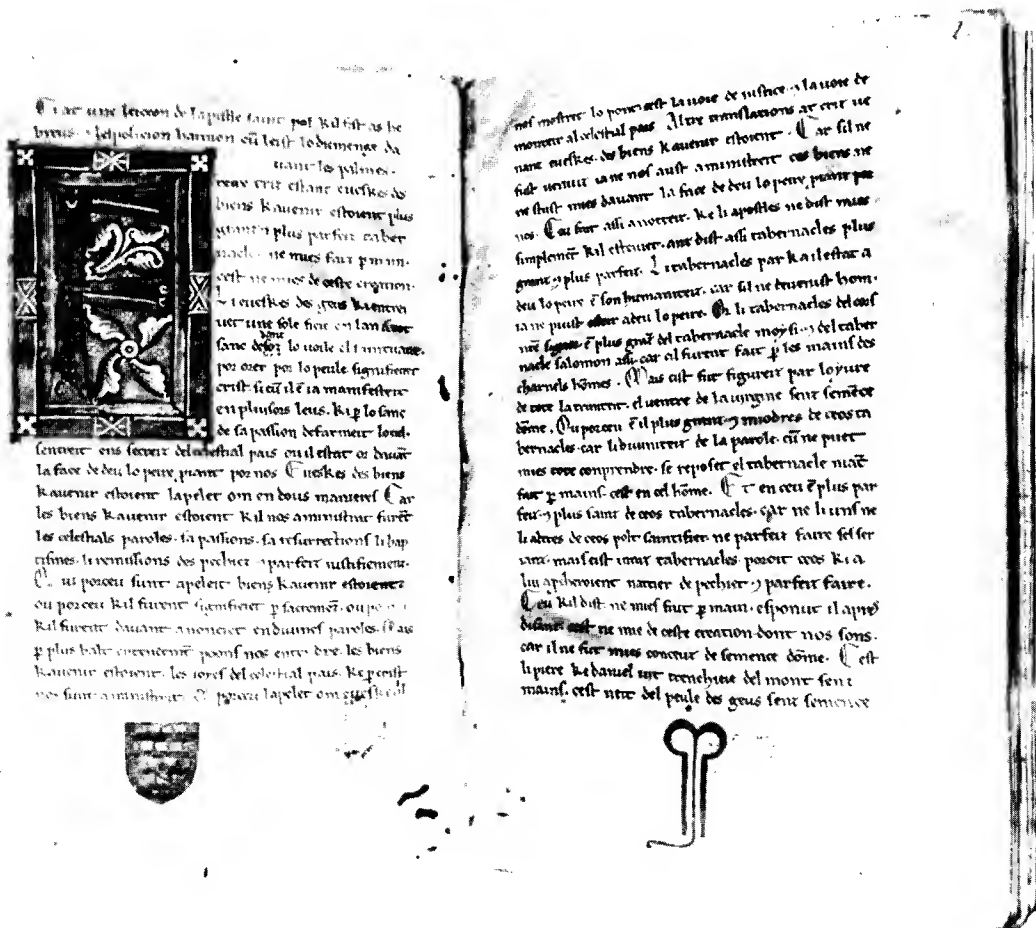 Ci at une lecceon de lapistle saint pol kil fist as he
breus. ⁊ lespolicion haimon cū leist lo diemenge da
uant les palmes.
biens kauenir estoient plus
grant ⁊ plus parfeit taber
nacle. ne mies fait p main.
cest ne mies de ceste creation.
Li eueskes des geus kentreu
uet une sole fieie en lan
sanc lo uoile el saintuaire.
por orer por lo peule significeit
crist si cū il ē ia manifesteit
en pluisors leus. ki p lo sanc
de sa passion
sentreit ens secreit del celestial pais ou il estat or dauāt
la face de deu lo peire, priant por nos. Eueskes des biens
kauenir estoient lapelet om en dous manieres. Car
les biens kauenir estoient kil nos aministrat furēt
les celestials paroles. sa passions. sa resurrections li bap
tismes. li remissions des pechiez ⁊ parfeit iustifiement.
Cui porceu sunt apeleit biens kauenir estoient.
ou porceu kil furent significiet p sacremēt. ou
kil furent dauant anonciet en diuines paroles. Mais
p plus halt entendemēt poons nos entendre. les biens
kauenir estoient. les ioies del celestial pais. ke p crist
nos sunt aministreit. Et porceu lapelet om eueske
nos mostret lo pont cest la uoie de iustice ⁊ la uoie de
monteir al celestial pais. Altre translations at crit ue
nant eueskes. des biens kauenir estoient. Car sil ne
fust uenuiz ia ne nos aust aministreit ces biens. ne
ne stust mies dauant la face de deu lo peire, priant por
nos. Ceu fait assi a noteir. ke li apostles ne dist mies
simplemēt kil esteuet. anz dist assi tabernacles plus
granz ⁊ plus parfeiz. Li tabernacles par ka il estat a
deu lo peire ē son humaniteiz. car sil ne deuenist hom.
ia ne puist a deu lo peire. Et li tabernacles del cors
nr̄e ē plus granz del tabernacle moysi. ⁊ del taber
nacle salomon assi. car cil furent fait p les mains des
charnels hōmes. Mais cist fut figureiz par loyure
de tote la triniteit. el uentre de la uirgine senz semēce
dōme. Ou porceu ē il plus granz ⁊ miodres de ceos ta
bernacles. car li diuiniteiz de la parole. cū ne puet
mies tote conprendre. se reposet el tabernacle niāt
fait p mains. cest en cel hōme. Et en ceu ē plus par
feiz ⁊ plus sainz de ceos tabernacles. car ne li uns ne
li altres de ceos polt saintifier. ne parfeit faire sel ser
iant. mais cist uraiz tabernacles poroit ceos ki a
lui apcheroient nattier de pechiet ⁊ parfeit faire.
Ceu kil dist ne mies fait p main. esponut il apres
disant. cest ne mie de ceste creation dont nos sons.
car il ne fut mies conceuz de semence dōme. Cest
li piere ke daniel uit trenchiere del mont senz
mains. cest neiz del peule des geus senz semence